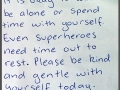 It is okay to want to
be alone or spend
time with yourself.
Even Superheroes
need time out to
rest. Please be kind
and gentle with
yourself today.